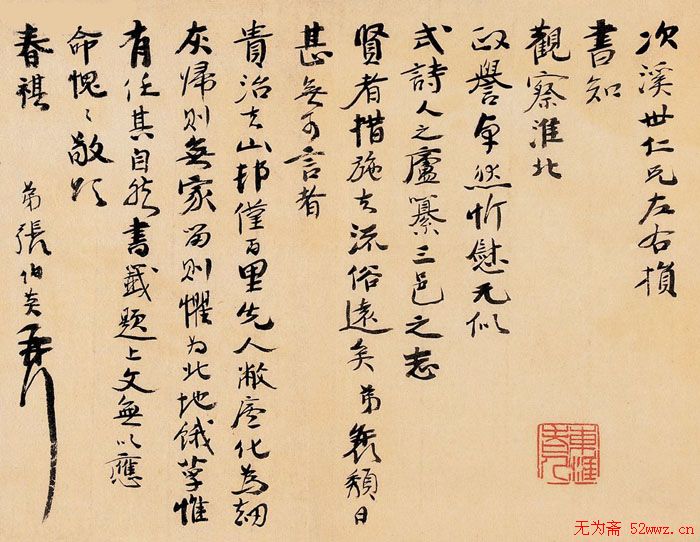 次溪世仁兄左右損
書知
觀察淮北
政譽卓然忻慰無似
式詩人之廬纂三邑之志
賢者措施去流俗遠矣弟衰頹日
甚無可言者
貴治去山邨僅百里先人敝廬化為劫
灰歸則無家留則懼為此地餓莩惟
有任其自然書籤題上文無以應
命愧〻敬頌
春祺
弟張伯英
无为斋 52wwz.cn